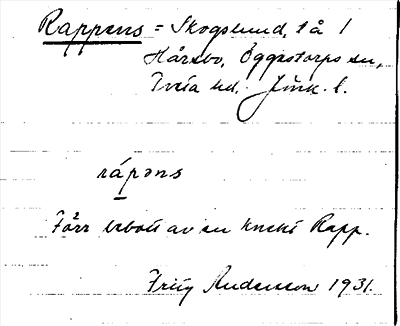 Rappens = Skogslund, lå 1
Hårsbo, Öggestorps sn,
Tveta hd. Jönk. l.
rápəns
Förr bebott av en knekt Rapp.
Fritz Andersson 1931.